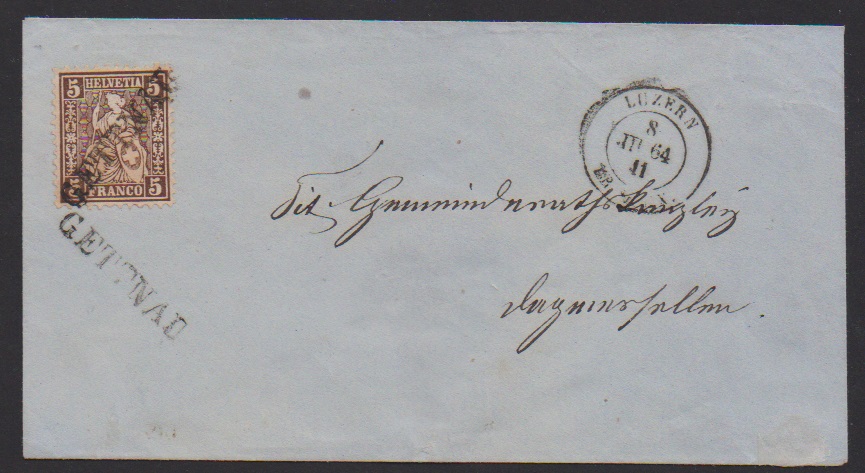 5 HELVETIA 5
5 FRANCO 5
GETTNAU
LUZERN
8
64
11
Tit. Gemeinderathskanzley
Dagmersellen.